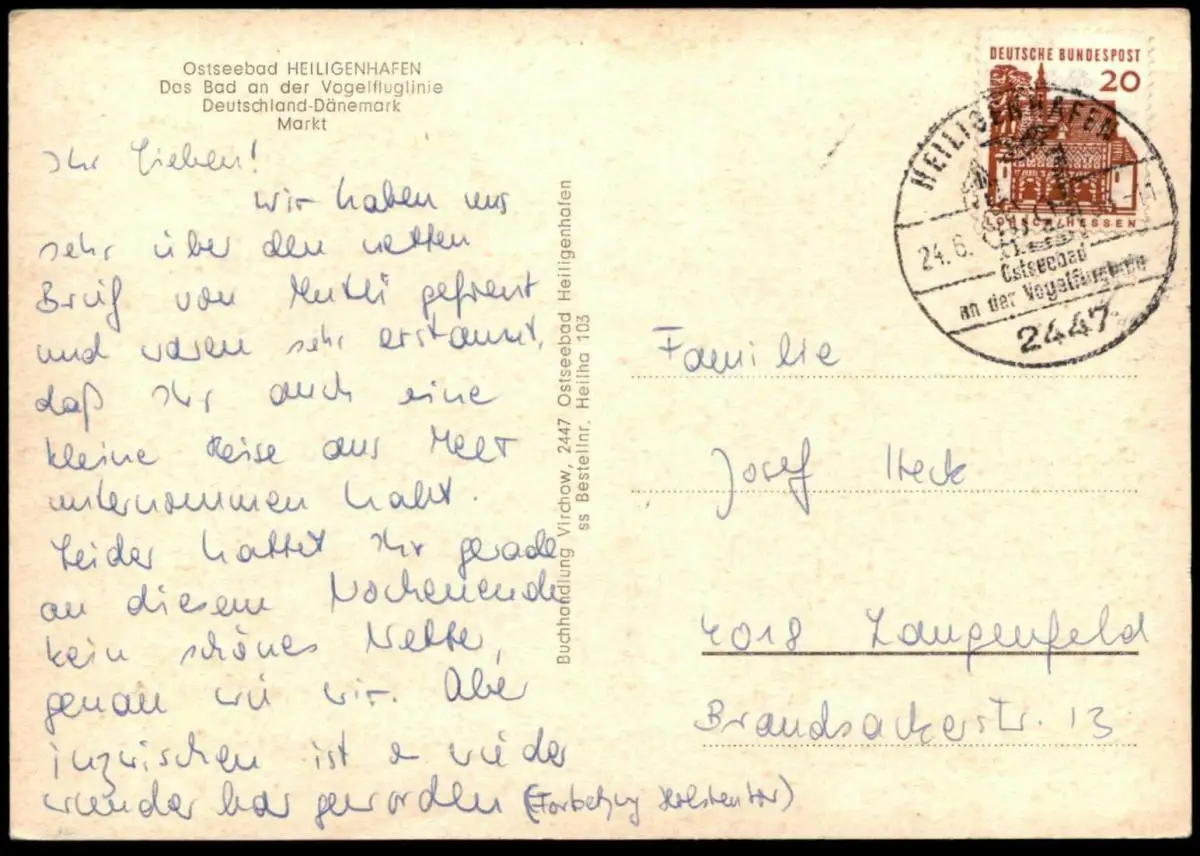 Ostseebad HEILIGENHAFEN
Das Bad an der Vogelfluglinie
Deutschland-Dänemark
Markt
Ihr Lieben!
Wir haben uns
sehr über den netten
Brief von Mutti gefreut
und waren sehr erstaunt,
daß Ihr auch eine
kleine Reise ans Meer
unternommen habt.
Leider hattet Ihr gerade
an diesem Wochenende
kein schönes Wetter,
genau wie wir. Aber
inzwischen ist es wieder
wunderbar geworden (Fortsetzung Holstentor)
Buchhandlung Virchow, 2447 Ostseebad Heiligenhafen
ss Bestellnr. Heilha 103
DEUTSCHE BUNDESPOST
20
LORSCH/HESSEN
HEILIGENHAFEN
24.6.
Ostseebad
an der Vogelfluglinie
2447
Familie
Josef Heck
4018 Langenfeld
Brandsackerstr. 13